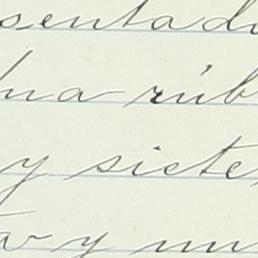 sentado
una rúb
y siete,
ta y un